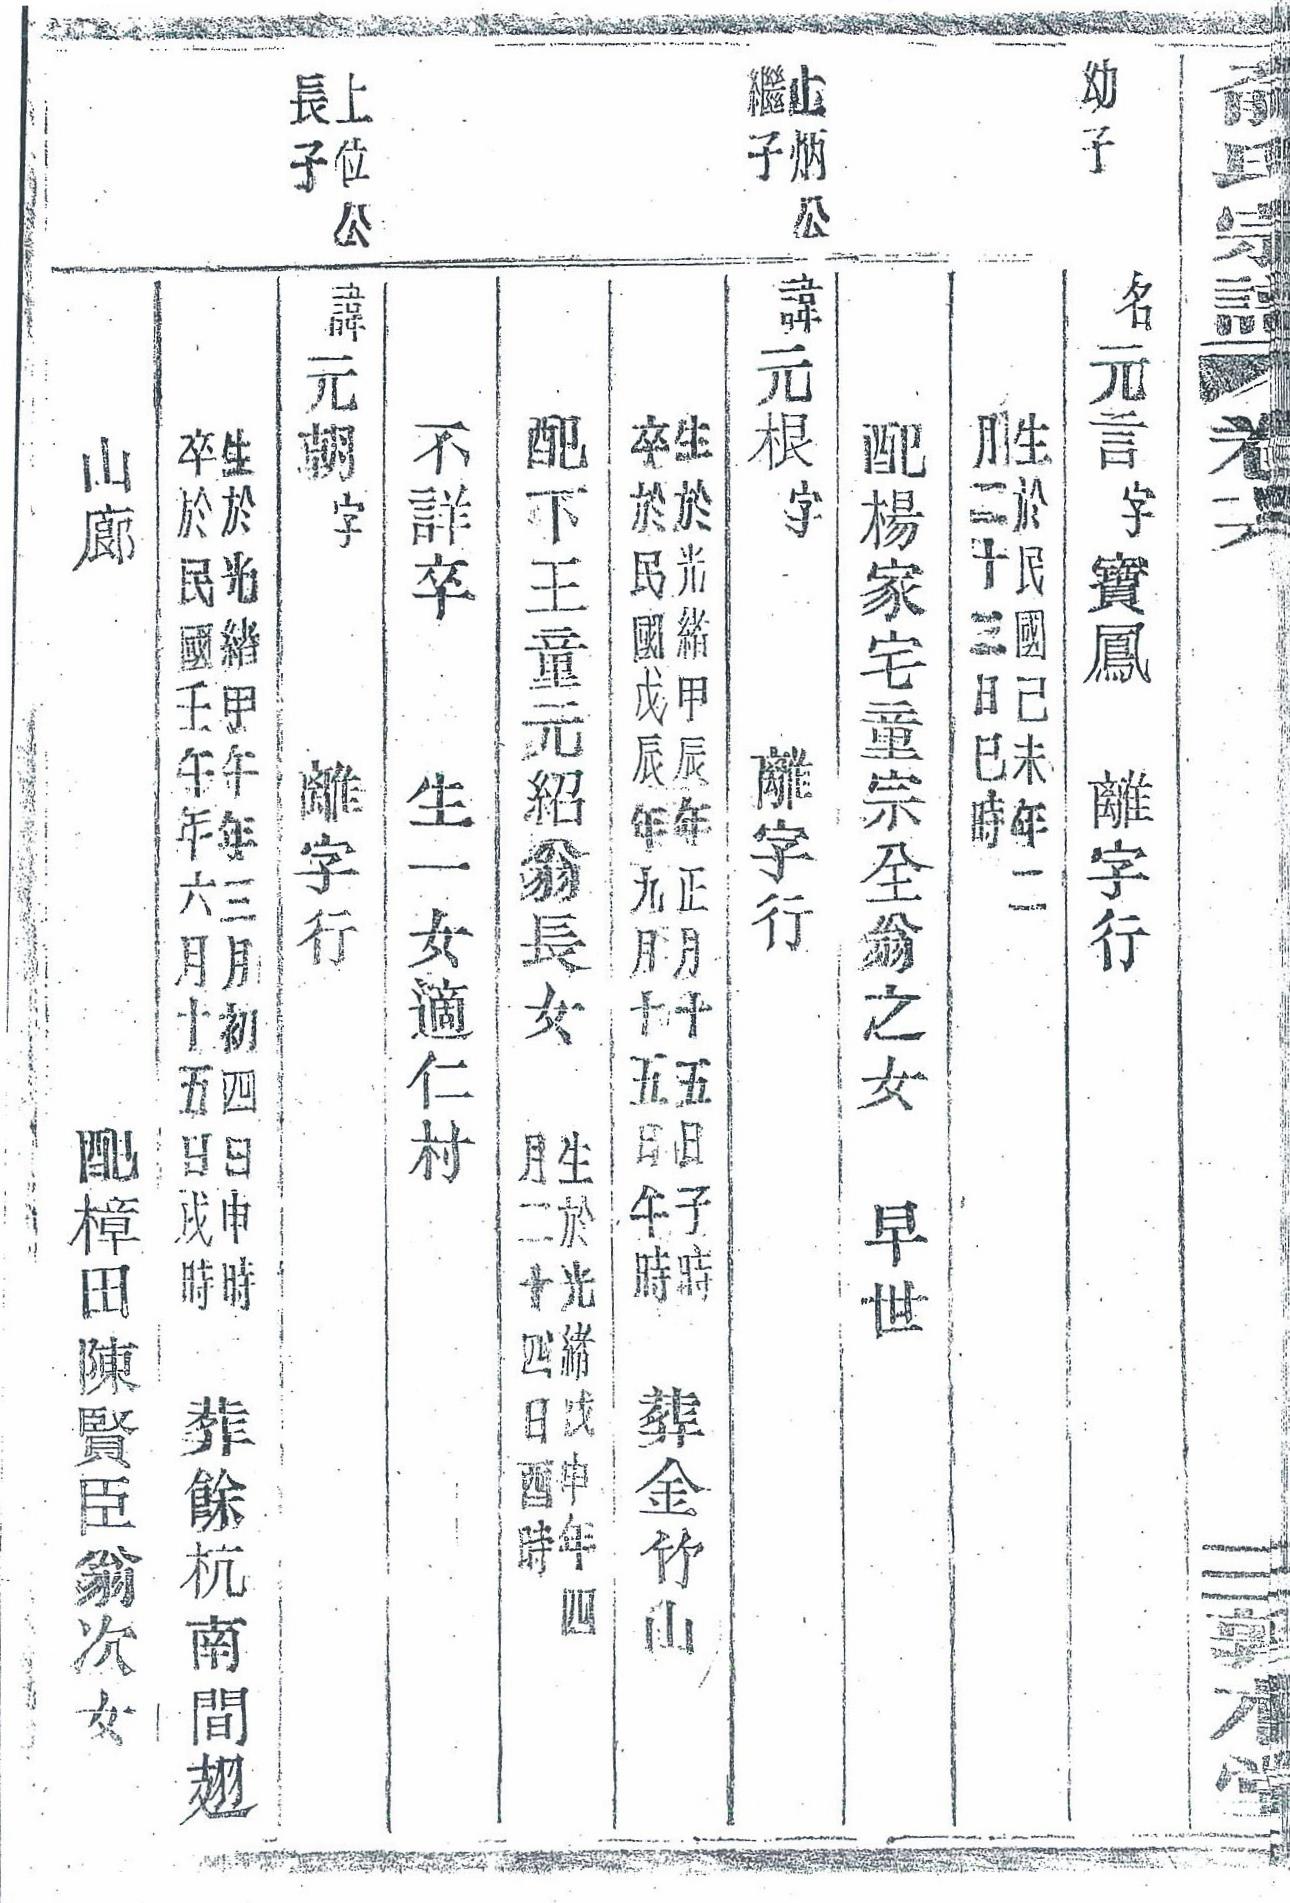 氏宗譜 卷六 三 敦本堂
幼子
名元言字寶鳳 離字行
生於民國己未年二
月二十三日巳時
配楊家宅童宗全翁之女 早世
上炳公
繼子
諱元根字 離字行
生於光緒甲辰年正月十五日子時
卒於民國戊辰年九月十五日午時 葬金竹山
配下王童元紹翁長女 生於光緒戊申年四
月二十四日酉時
不詳卒 生一女適仁村
上位公
長子
諱元朝字 離字行
生於光緒甲午年三月初四日申時
卒於民國壬午年六月十五日戌時 葬餘杭南間翅
山廊 配樟田陳賢臣翁次女